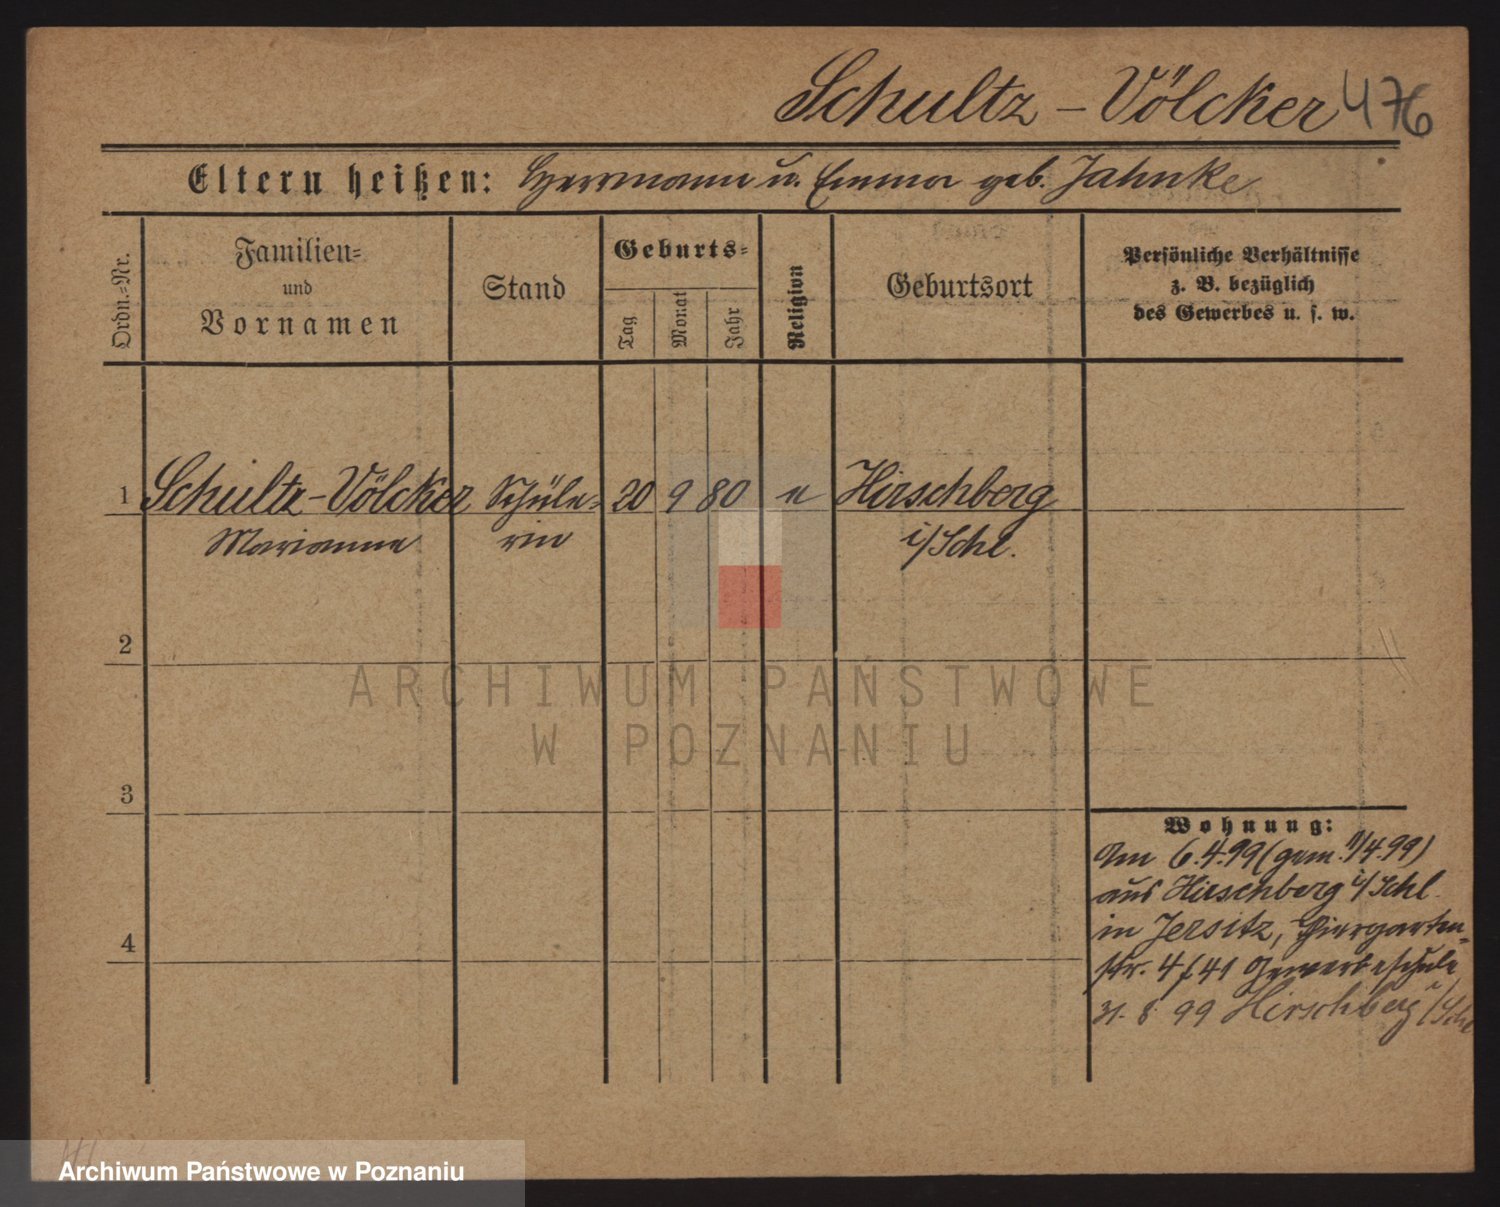 Schultz-Völcker 476
Eltern heißen: Herrmann u. Emma geb. Jahnke
Ordn.-Nr.
Familien-
und
Vornamen
Stand
Geburts-
Tag
Monat
Jahr
Religion
Geburtsort
Persönliche Verhältnisse
z. B. bezüglich
des Gewerbes u. s. w.
1 Schultz-Völcker Schüle- 20 9 80 Hirschberg
Marianne rin i/Schl.
2
ARCHIWUM PAŃSTWOWE
W POZNANIU
3
Wohnung:
Am 6.4.99 (gem. 11/4.99)
aus Hirschberg i/Schl.
in Jersitz, Thiergarten-
str. 4 Gewerbeschule
4
31. 8 99 Hirschberg i/Schl
Archiwum Państwowe w Poznaniu